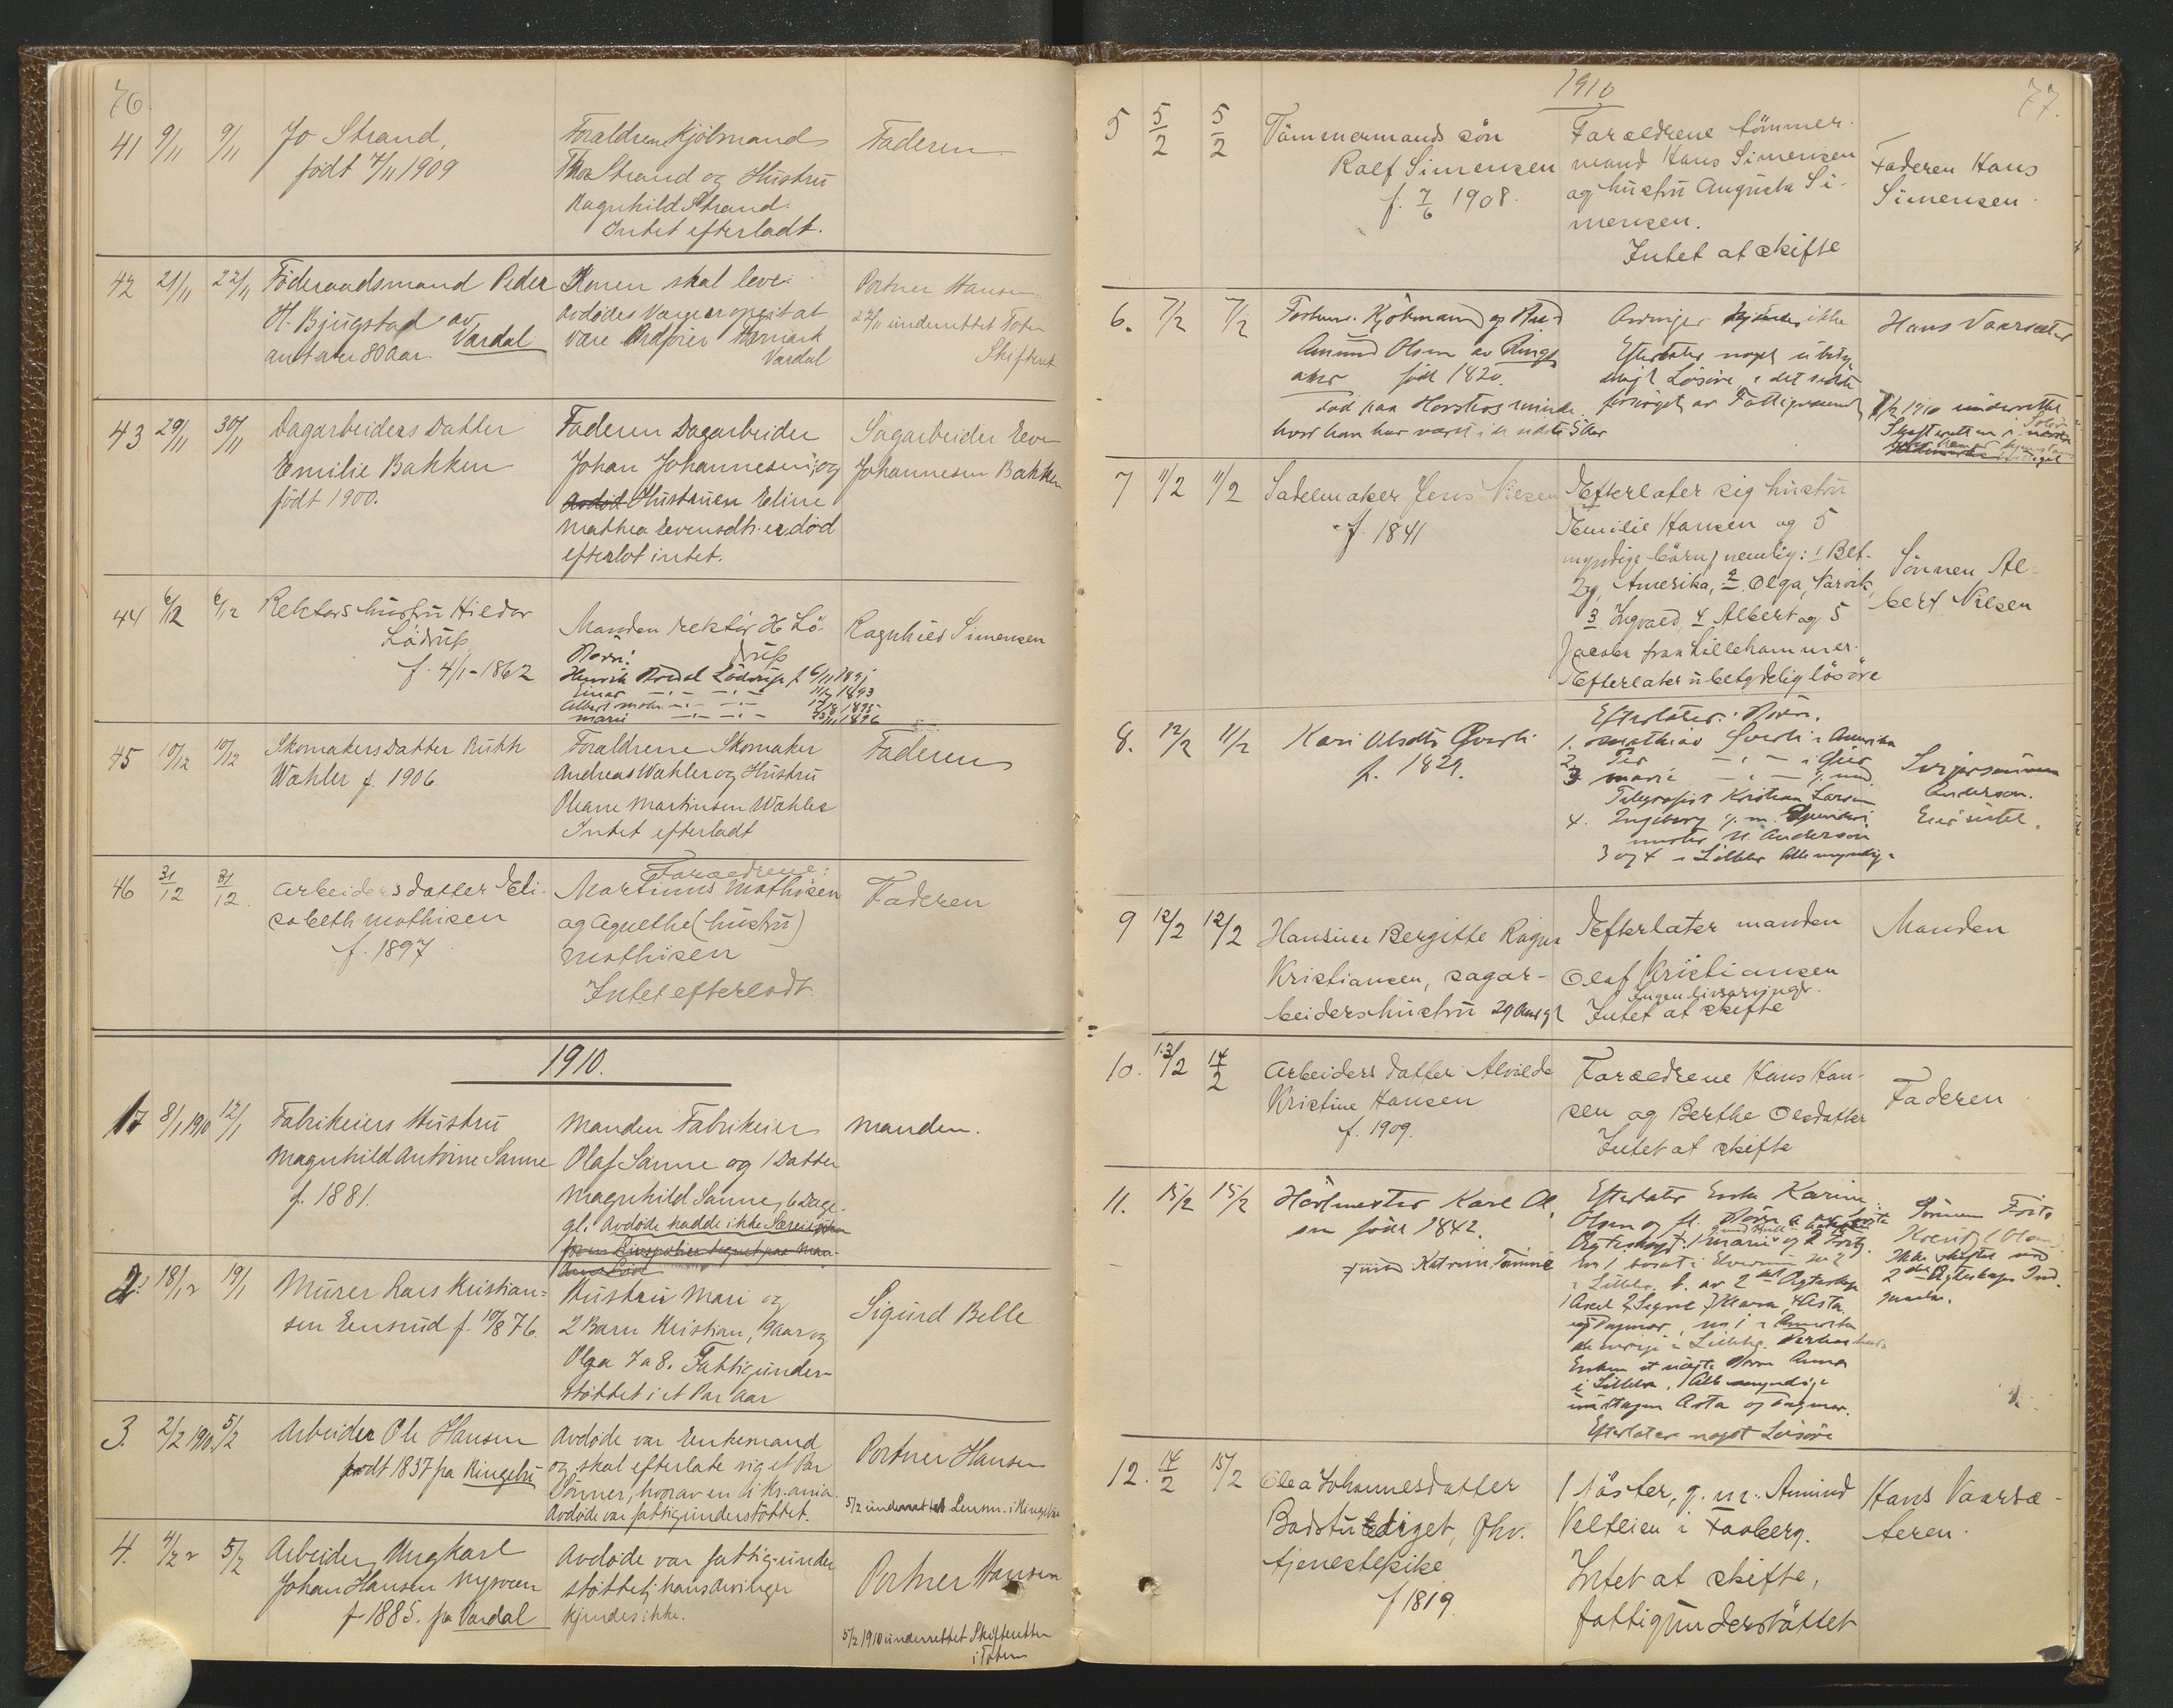 76.
41 9/11 9/11 Jo Strand,
født 7/11 1909
Forældren Kjøbmand
Thor Strand og Hustru
Ragnhild Strand.
Intet efterladt.
Faderen
42 21/11 22/11 Föderaadsmand Peder
H. Bjugstad av
antater 80 Aar. Vardal
Konen skal leve.
Avdødes Værge opgit at
være Ordfører
Vardal
Portner Hansen
22/11 underrettet Toten
Skifteret
43 29/11 30/11 Dagarbeiders Datter
Emilie Bakken
født 1900.
Faderen Dagarbeider
Johan Johannesen, og
Avdød Hustruen Eline
Mathea Evensdtr. er død
efterlot intet.
Sagarbeider Even
Johannesen Bakken
44 6/12 6/12 Rektors hustru Hildor
Lödrup
f. 4/1-1862
Manden rektor H Lö-
drup
Børn:
Henrik Lödrup f. 6/11 1891
Einar 11/7 1893
Albert 17/8 1895
Marie 23/11 1896
Ragnhild Simensen
45 10/12 10/12 Skomakers Datter Ruth
Wahler f. 1906
Forældrene Skomaker
Andreas Wahler og Hustru
Oleane Martinsen Wahler
Intet efterladt
Faderen
46 31/12 31/12 Arbeiders datter Eli-
sabeth Mathisen
f. 1897
Foraedrene:
Martinus Mathisen
og Agnethe (hustru)
Mathisen
Intet efterladt
Faderen
1910.
1 8/1 1910 12/1 Fabrikeiers Hustru
Magnhild Antoine Sanne
f. 1881.
Manden Fabrikeier
Olaf Sanne og 1 Datter
Magnhild Sanne, 6 Dage
gl. Avdøde hadde ikke Særeie
Manden.
2. 18/1 19/1 Murer Lars Kristian=
sen Ensrud f. 10/8 76.
Hustru Mari og
2 Barn Kristian, 9 aar og
Olga 7 a 8. Fattigunder-
støttet i et Par Aar
Sigurd Belle
3. 2/2 1910. 5/2 Arbeider Ole Hansen
født 1837 fra Ringebu
Avdøde var Enkemand
og skal efterlate sig et Par
Sønner, hvorav en i Kr.ania.
Avdøde var fattigunderstøttet.
Portner Hansen
5/2 underrettet Lensm. i Ringebu
4. 4/2 5/2 Arbeider Ungkarl
Johan Hansen Nysveen
f. 1885. fra Vardal
Avdøde var fattigunder
støttet, hans Arvinger
kjendes ikke.
Portner Hansen
5/2 1910 underrettet Skifteretten
i Toten
1910
77.
5 5/2 5/2 Tömmermands sön
Ralf Simensen
f. 7/6 1908.
Foraedrene tömmer-
mand Hans Simensen
og hustru Augusta Si-
mensen.
Intet at skifte
Faderen Hans
Simensen.
6. 7/2 7/2 Forhenv. Kjöbmand og
Amund Olsen av Rings
aker født 1820.
död paa Horsters minde.
hvor han har været i de sidste 5 Aar
Arvinger kjendes ikke
Efterlater noget ubety
deligt Lösöre, i det sidste
forsörget av Fattigvæsenet
Hans Vaarsæter
8/2 1910 underrettet
Skifteretten i
7 11/2 11/2 Sadelmaker Jens Nielsen
f. 1841
Efterlater sig hustru
Emilie Hansen og 5
myndige börn, nemlig: 1 Bet-
zy, Amerika, 2 Olga, Narvik,
3 Ingvald, 4 Albert og 5
Jacob fra Lillehammer.
Efterlater ubetydelig lösöre
Sönnen Al-
bert Nielsen
8. 12/2 11/2 Kari Olsdtr Överli
f. 1829.
Efterlater: Börn.
1. Mathias Överli i Amerika
2. Per
3 Marie
Telegrafist Kristian Larsen
4. Ingeborg g. m.
mester N. Anderson
3 og 4 i Lillehr Alle myndige
Svigersønnen
Anderson.
Eier intet.
9 12/2 12/2 Hansine Bergitte Ragna
Kristiansen, sagar-
beiders hustru 29 Aar gl
Efterlater manden
Olaf Kristiansen
Ingen livsarvinger.
Intet at skifte
Manden
10. 13/2 14/2 Arbeiders datter Alvilde
Kristine Hansen
f. 1909.
Foraedrene Hans Han-
sen og Berthe Olsdatter
Intet at skifte
Faderen
11. 15/2 15/2 Karl Ol.
sen född 1842.
Efterlater Enke Karine
Olsen og fl. Börn
Ægteskap: 1 Marie og 2 Fritz
i Lillehr. b. av 2det Ægteskap
1 Aksel 2 Signe 3 Klara, 4 Asta
og Dagmar, no 1 i Amerika
i Lillehr. Alle myndige
undtagen Asta og Dagmar.
Efterlater noget Lösöre
Sönnen Fritz
Ikke skiftet med
2det Ægteskaps Ind-
gaaelse.
12. 14/2 15/2 Olea Johannesdatter
Badstuediget, fhv.
tjenestepike
f 1819.
1 söster, g. m. Amund
Velteien i Faaberg.
Intet at skifte,
fattigunderstöttet
Hans Vaarsæ-
teren.